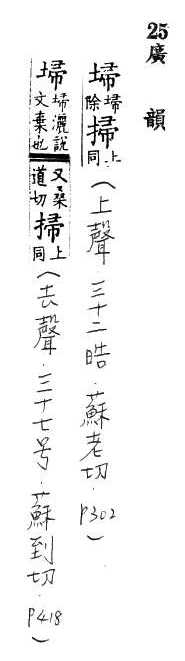 25廣韻
埽埽除掃上同(上聲．三十二晧．蘇老切．P302)
埽埽灑說文棄也又桒道切掃上同(去聲．三十七号．蘇到切．P418)